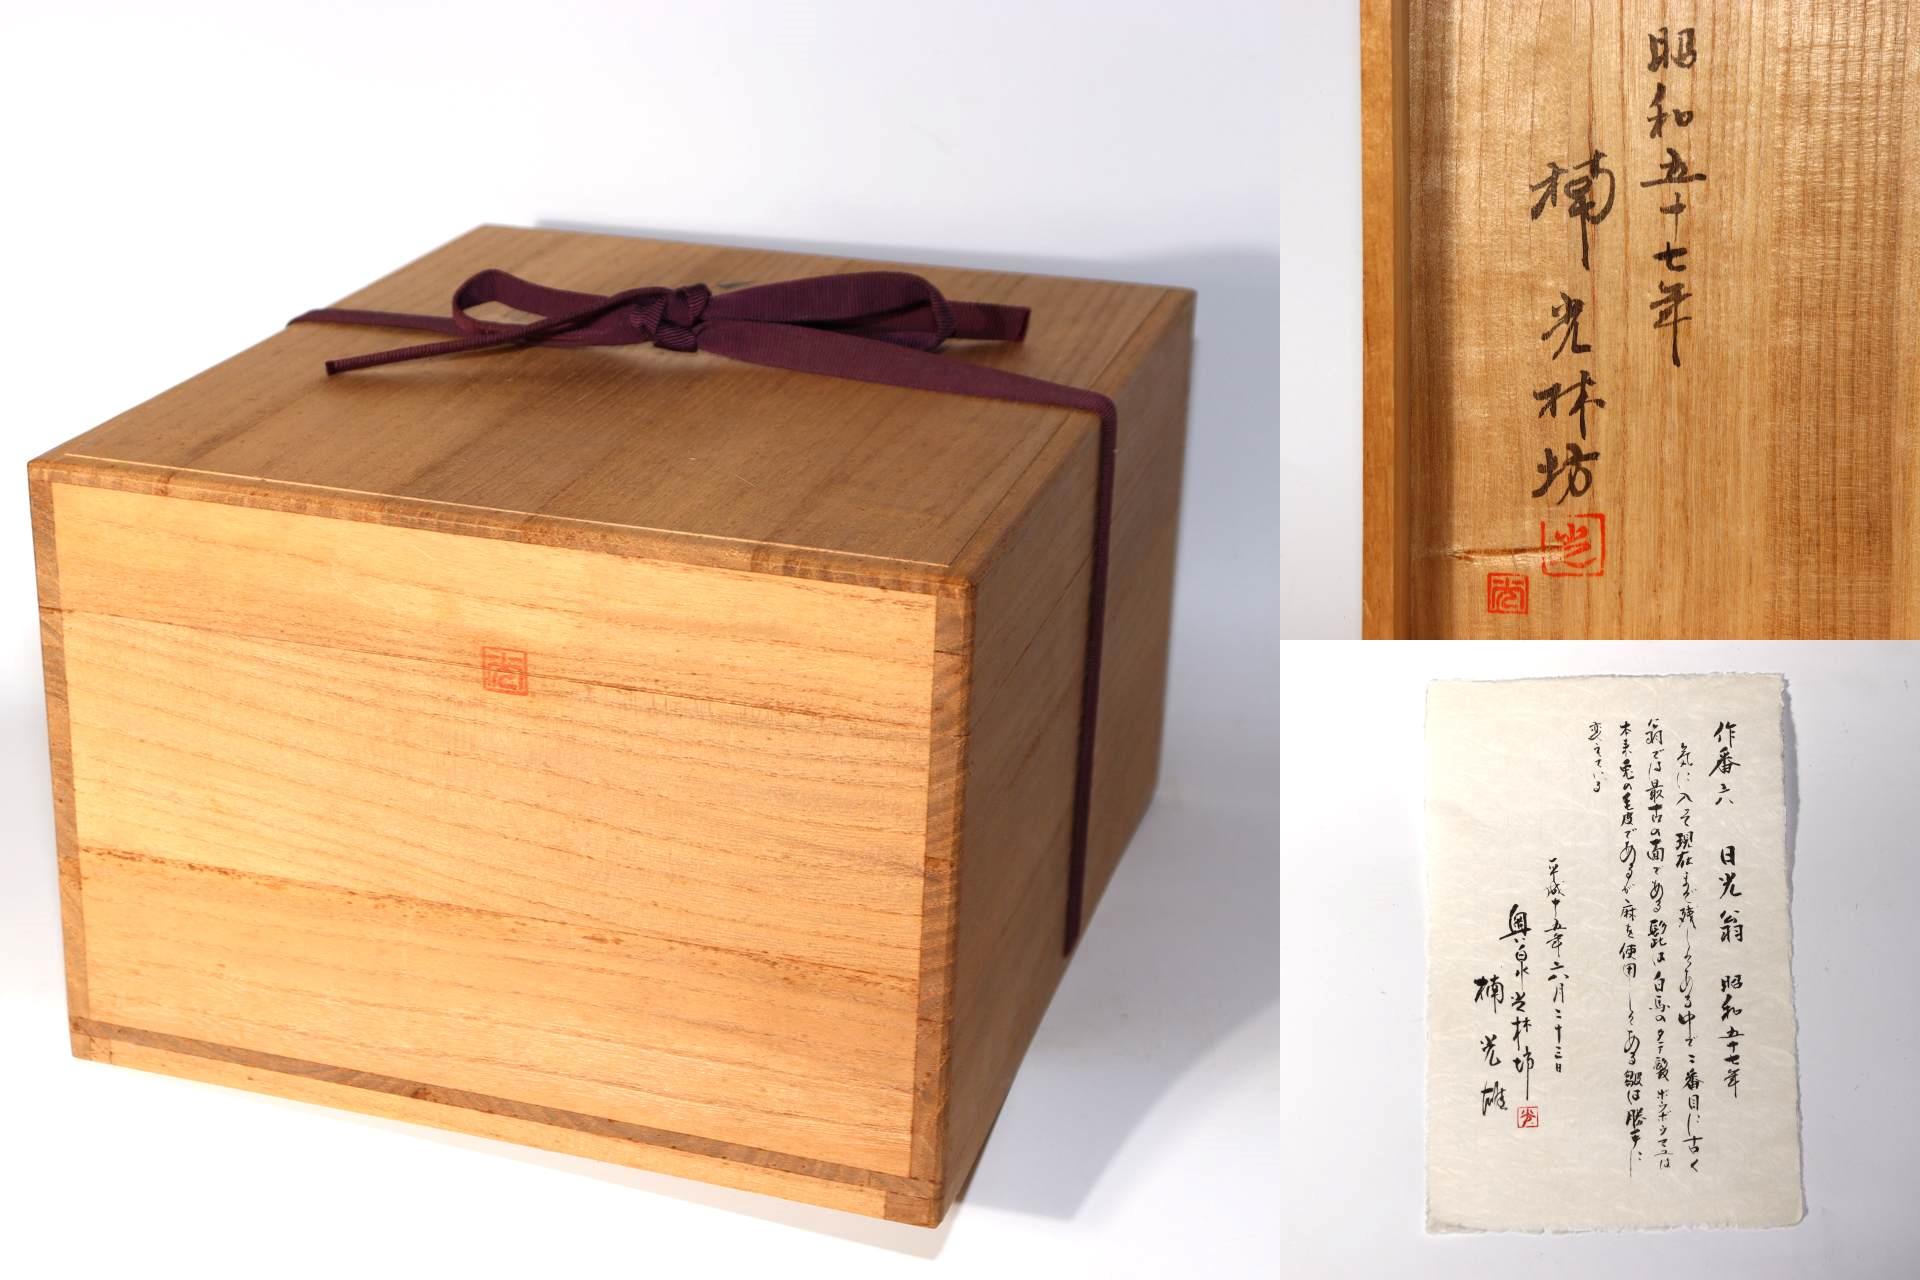 昭和五十七年
楠光林坊
光
光
光
作番六 日光翁 昭和五十七年
気に入って現在まで残してある中で二番目に古く
翁では最古の面である髭は白馬のタテ髪ボウボウマユは
本来兎の毛皮であるが麻を使用してある皺は勝手に
変えている
平成十五年六月二十三日
奥泉光林坊
楠光雄